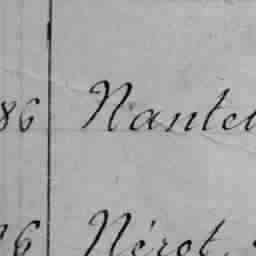 86 Nantet
16 Nérot